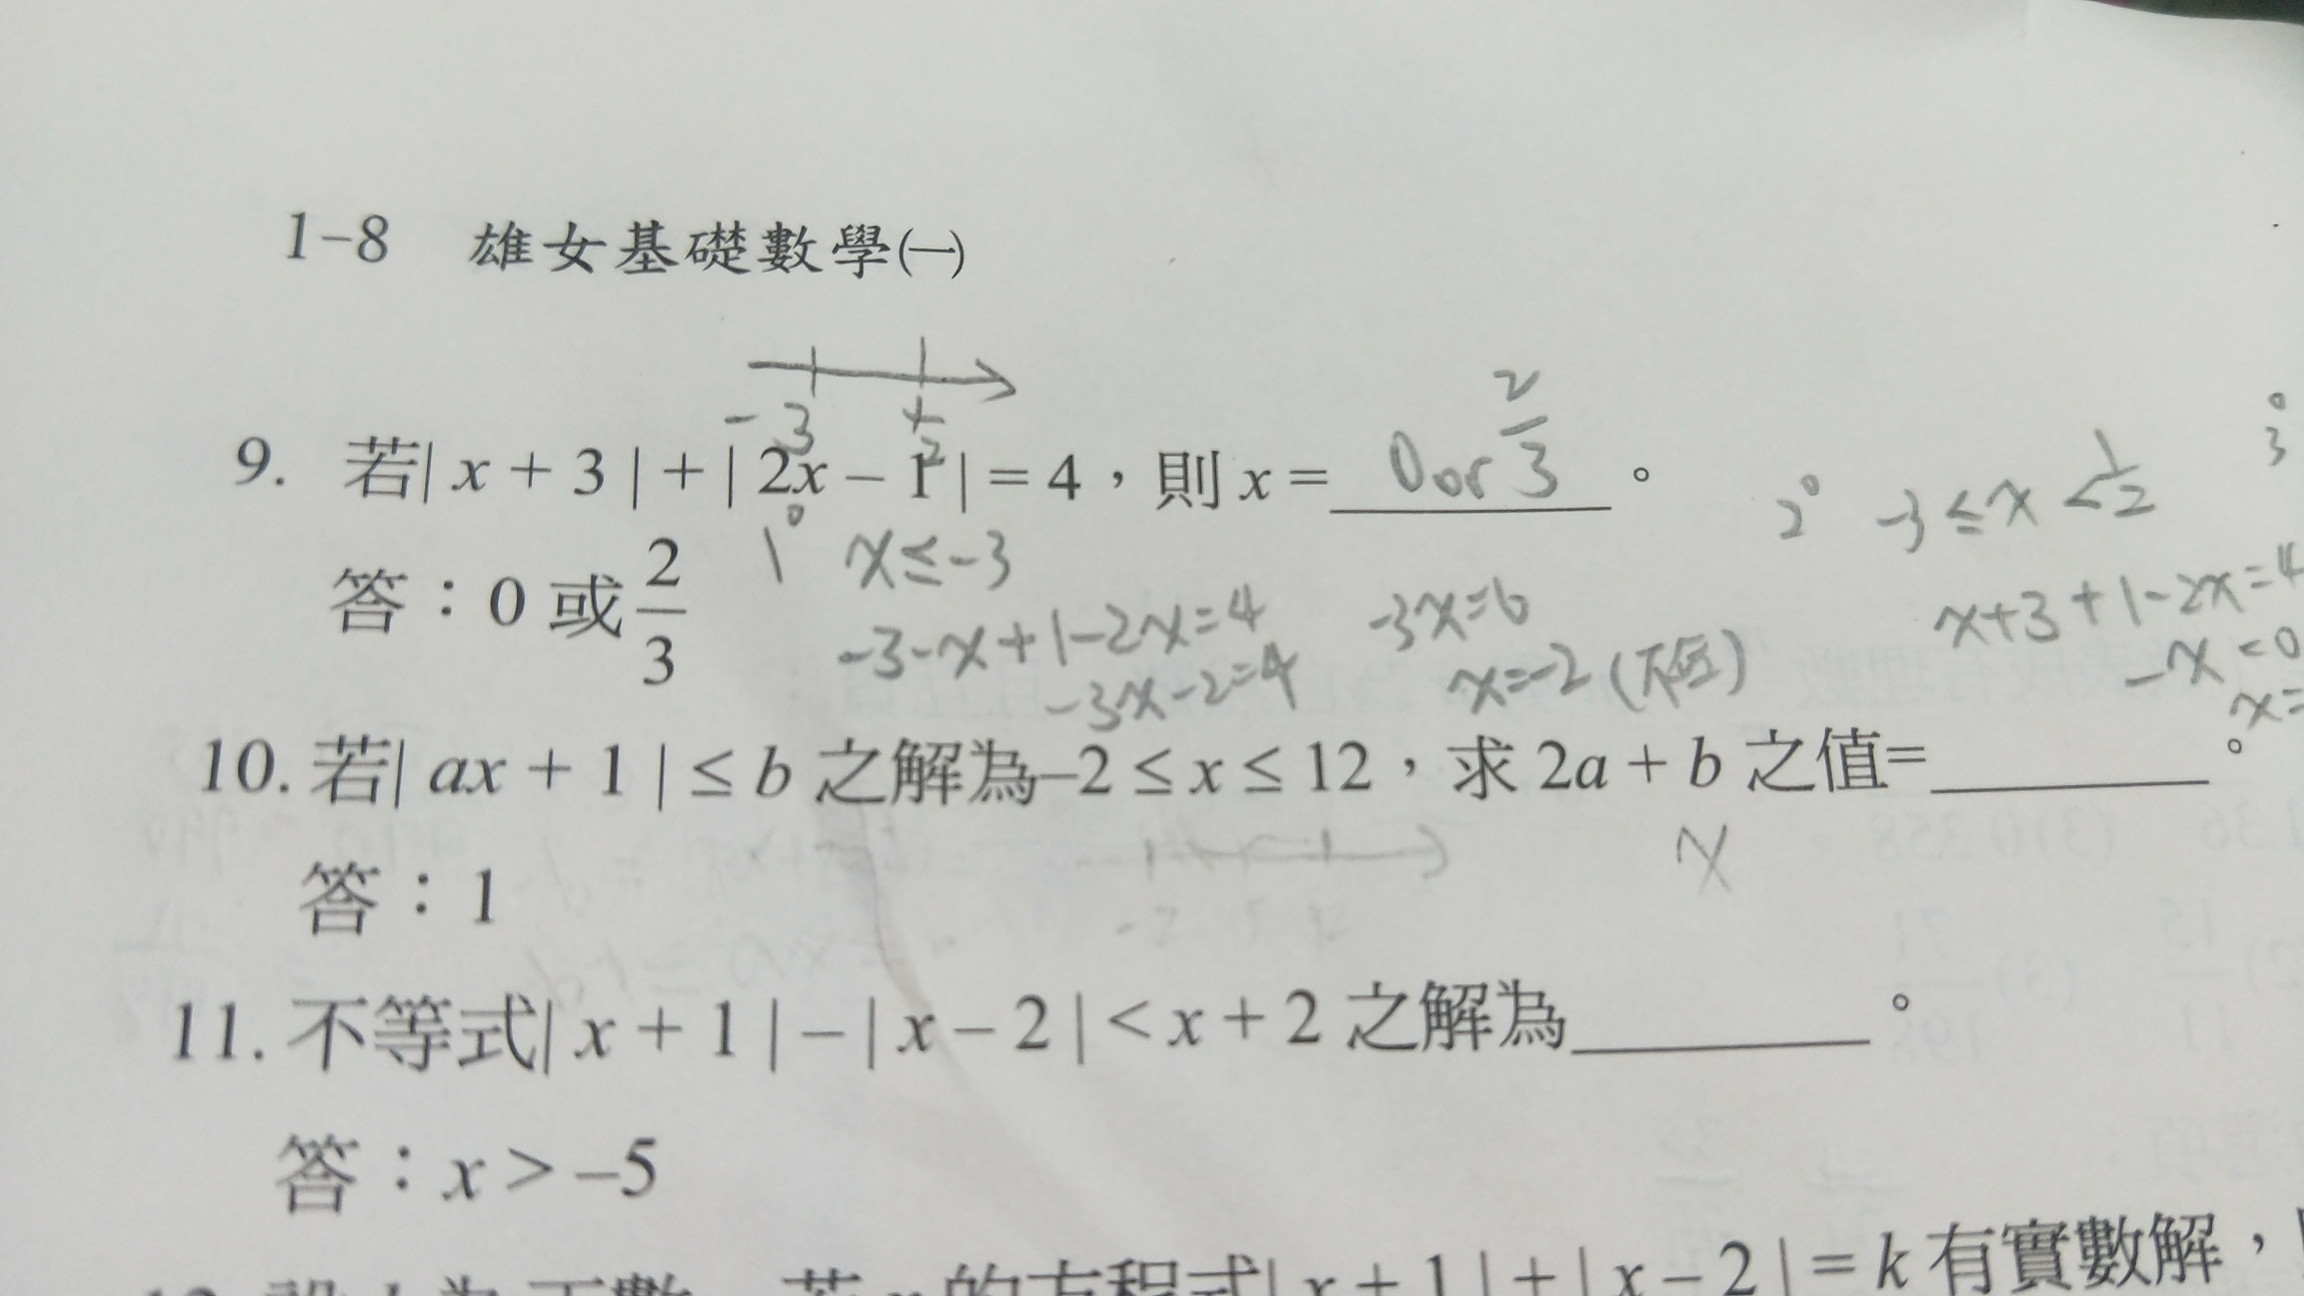 1-8 雄女基礎數學㈠
-3 1/2
9. 若| x + 3 | + | 2x - 1 | = 4，則 x = 0 or 2/3 。
答：0 或 2/3
1° x ≤ -3
-3-x+1-2x=4
-3x-2=4
-3x=6
x=-2 (不合)
2° -3 ≤ x < 1/2
x+3+1-2x=4
-x=0
x=
3°
10. 若| ax + 1 | ≤ b 之解為–2 ≤ x ≤ 12，求 2a + b 之值=________。
答：1
-2 5 12
11. 不等式| x + 1 | – | x – 2 | < x + 2 之解為________。
答：x > –5
的方程式| x + 1 | + | x – 2 | = k 有實數解，